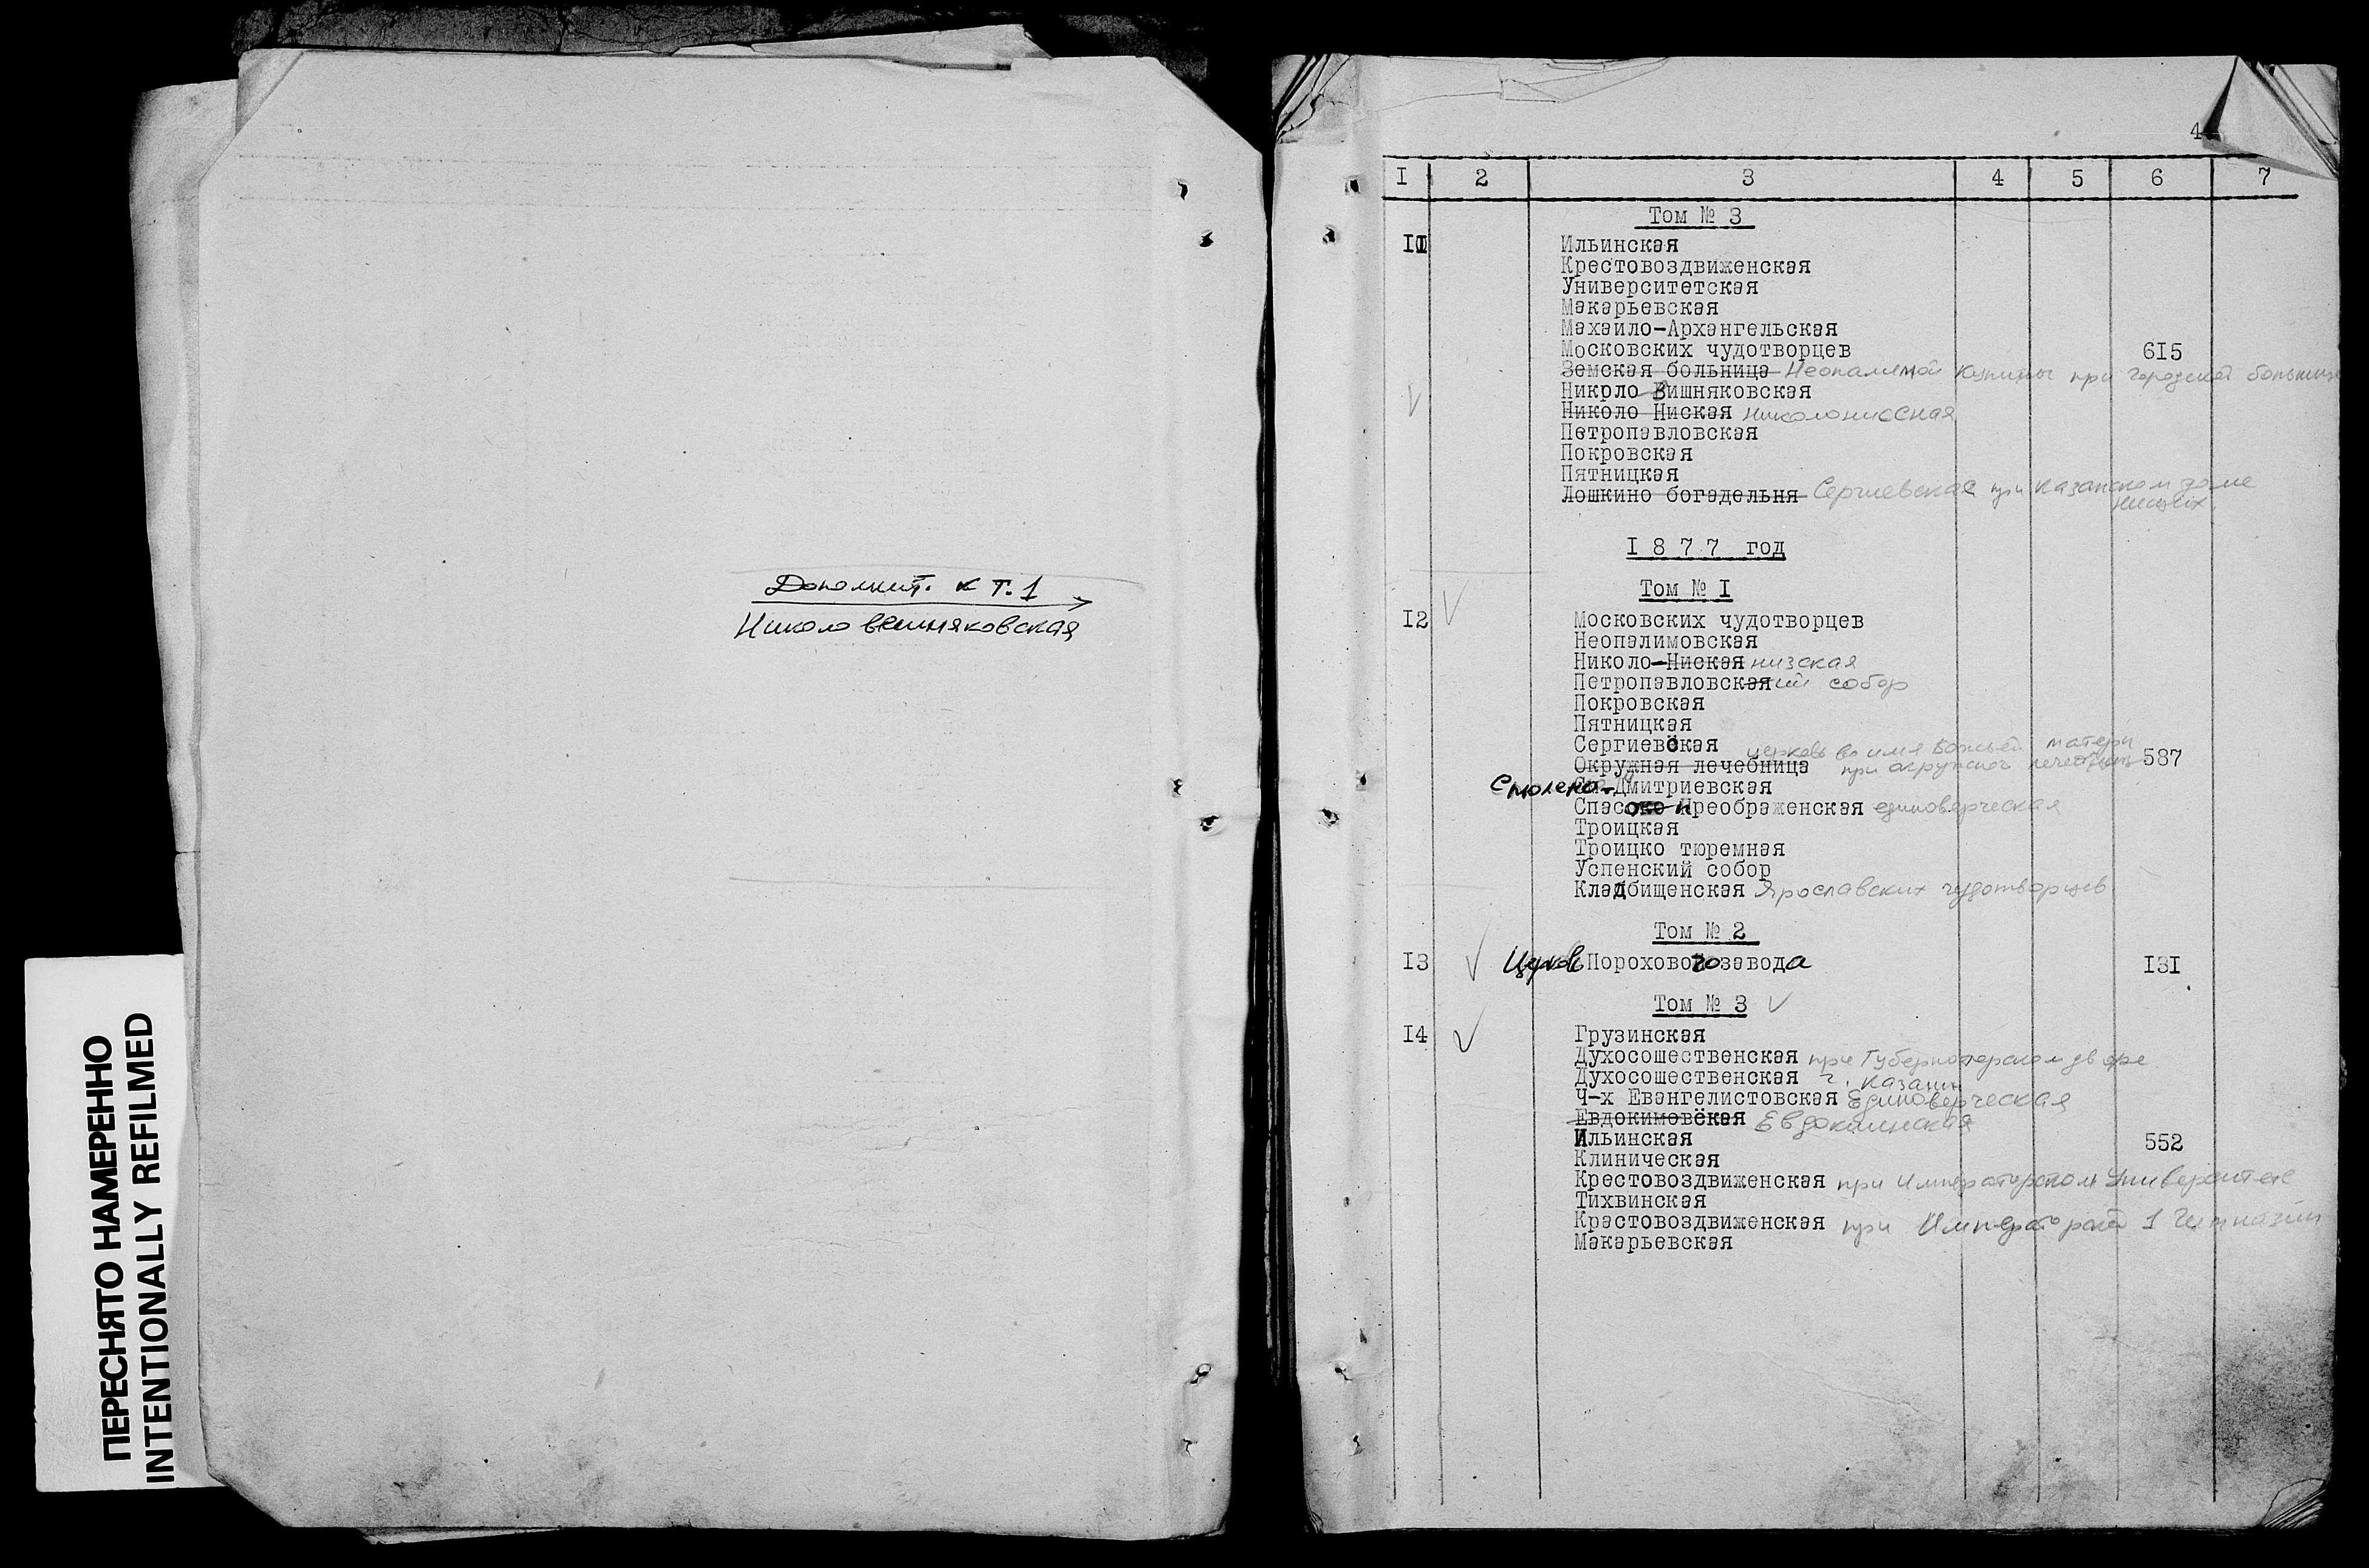 ПЕРЕСНЯТО НАМЕРЕННО
INTENTIONALLY REFILMED
Дополнит. к т.1
Николо вешняковская
4
I 2 3 4 5 6 7
Том № 3
II Ильинская
Крестовоздвиженская
Университетская
Макарьевская
Махаило-Архангельская
Московских чудотворцев 6I5
Земская больница Неопалимой Купины при городской больнице
Никрло Вишняковская
Николо Ниская николониская
Петропавловская
Покровская
Пятницкая
Лошкино богадельня Сергиевская при Казанском доме
нищих
I 8 7 7 год
Том № I
I2 Московских чудотворцев
Неопалимовская
Николо-Ниская низская
Петропавловская ий собор
Покровская
Пятницкая
Сергиевская церковь во имя Божьей матери
Окружная лечебница при окружной лечебнице 587
Смолено-Дмитриевская
Спасско Преображенская единоверческая
Троицкая
Троицко тюремная
Успенский собор
Кладбищенская Ярославских чудотворцев
Том № 2
I3 Церковь Порохового завода I3I
Том № 3
I4 Грузинская
Духосошественская при Губернаторском дворе
Духосошественская г. Казани
Ч-х Евангелистовская Единоверческая
Евдокимовская Евдокиинская
Ильинская 552
Клиническая
Крестовоздвиженская при Императорском Университете
Тихвинская
Крастовоздвиженская при Императорской 1 Гимназии
Макарьевская